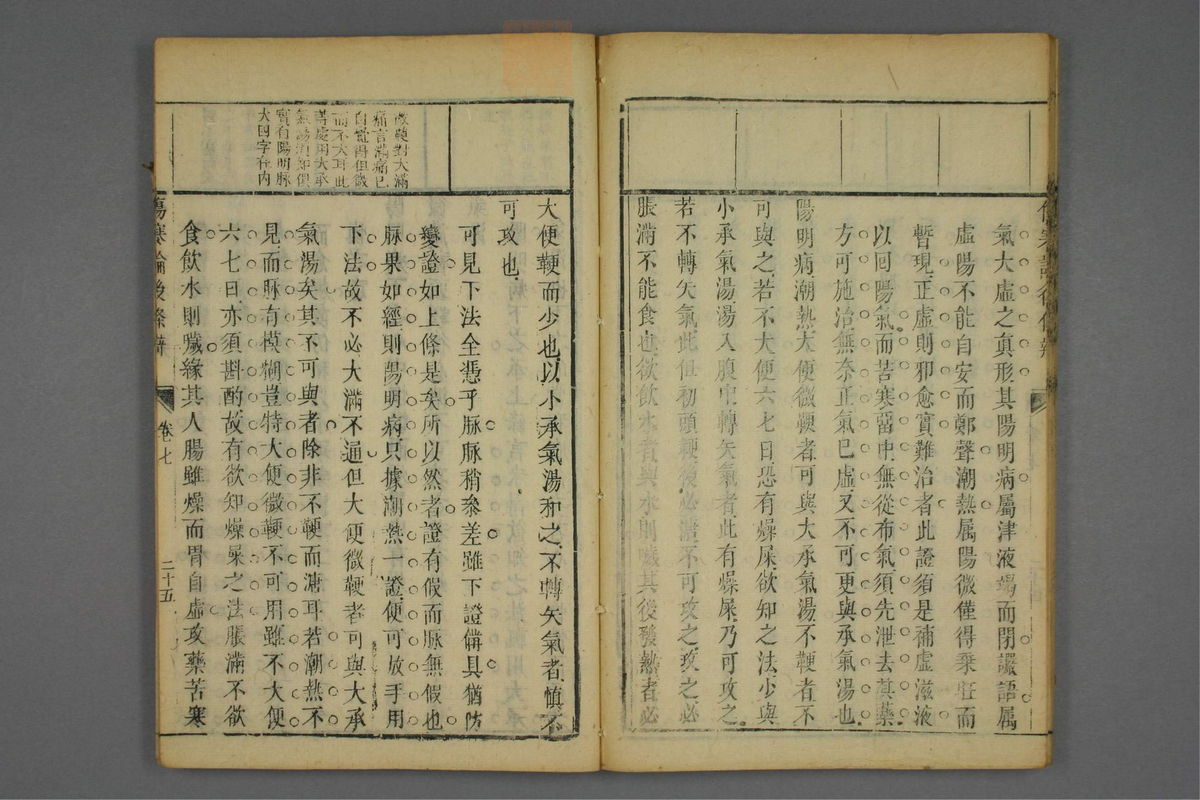 氣大虛之眞形其陽明病屬津液竭而閉讝語属
虛陽不能自安而鄭聲潮熱属陽微僅得乘旺而
暫現正虛則邪愈實難治者此證須是補虛滋液
以回陽氣而苦寒留中無從布氣須先泄去其藥
方可施治無奈正氣已虛又不可更與承氣湯也
陽明病潮熱大便微鞕者可與大承氣湯不鞕者不
可與之若不大便六七日恐有燥屎欲知之法少與
小承氣湯湯入腹中轉矢氣者此有燥屎乃可攻之
若不轉矢氣此但初頭鞕後必溏不可攻之攻之必
脹滿不能食也欲飲水者與水則噦其後發熱者必
大便鞕而少也以小承氣湯和之不轉矢氣者慎不
可攻也
可見下法全憑乎脉脉稍參差雖下證備具猶防
變證如上條是矣所以然者證有假而脉無假也
脉果如經則陽明病只據潮熱一證便可放手用
下法故不必大滿不通但大便微鞕者可與大承
氣湯矣其不可與者除非不鞕而溏耳若潮熱不
見而脉有模糊豈特大便微鞕不可用雖不大便
六七日亦須斟酌故有欲知燥屎之法脹滿不欲
食飲水則噦緣其人腸雖燥而胃自虛攻藥苦寒
微鞕對大滿
痛言滿痛已
自覺得但微
而不大耳此
大四字在內
傷寒論後條辯
卷七
二十五